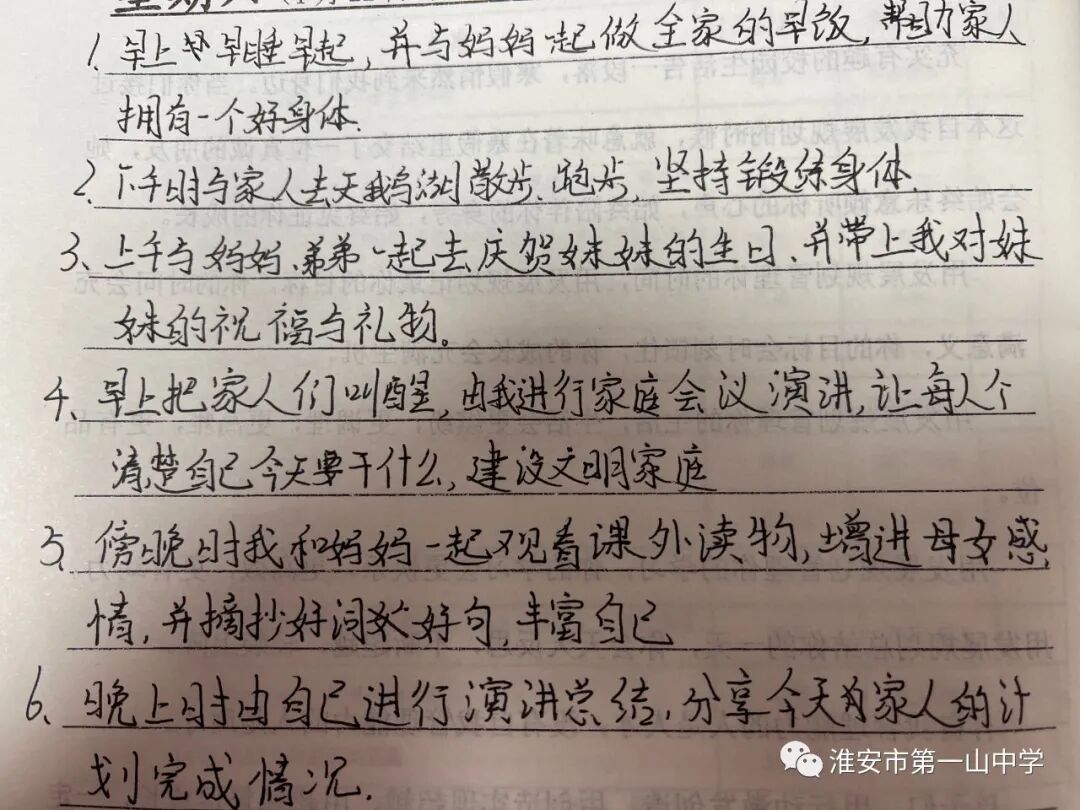 1. 早上早睡早起，并与妈妈一起做全家的早饭，帮助家人
拥有一个好身体.
2. 下午时与家人去天鹅湖散步、跑步，坚持锻练身体.
3、上午与妈妈、弟弟一起去庆贺妹妹的生日、并带上我对妹
妹的祝福与礼物。
4、早上把家人们叫醒，由我进行家庭会议演讲，让每人个
清楚自己今天要干什么，建设文明家庭
5、傍晚时我和妈妈一起观看课外读物，增进母女感
情，并摘抄好词好句，丰富自己
6、晚上时由自己进行演讲总结，分享今天为家人的计
划完成情况.
淮安市第一山中学